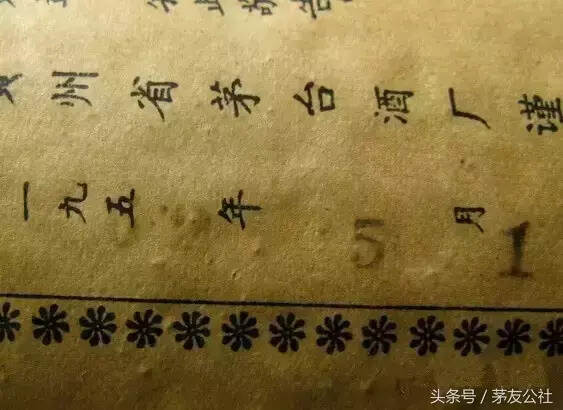 此敬告
州省茅台酒厂谨
一九五 年 5 月 1
头条号 / 茅友公社